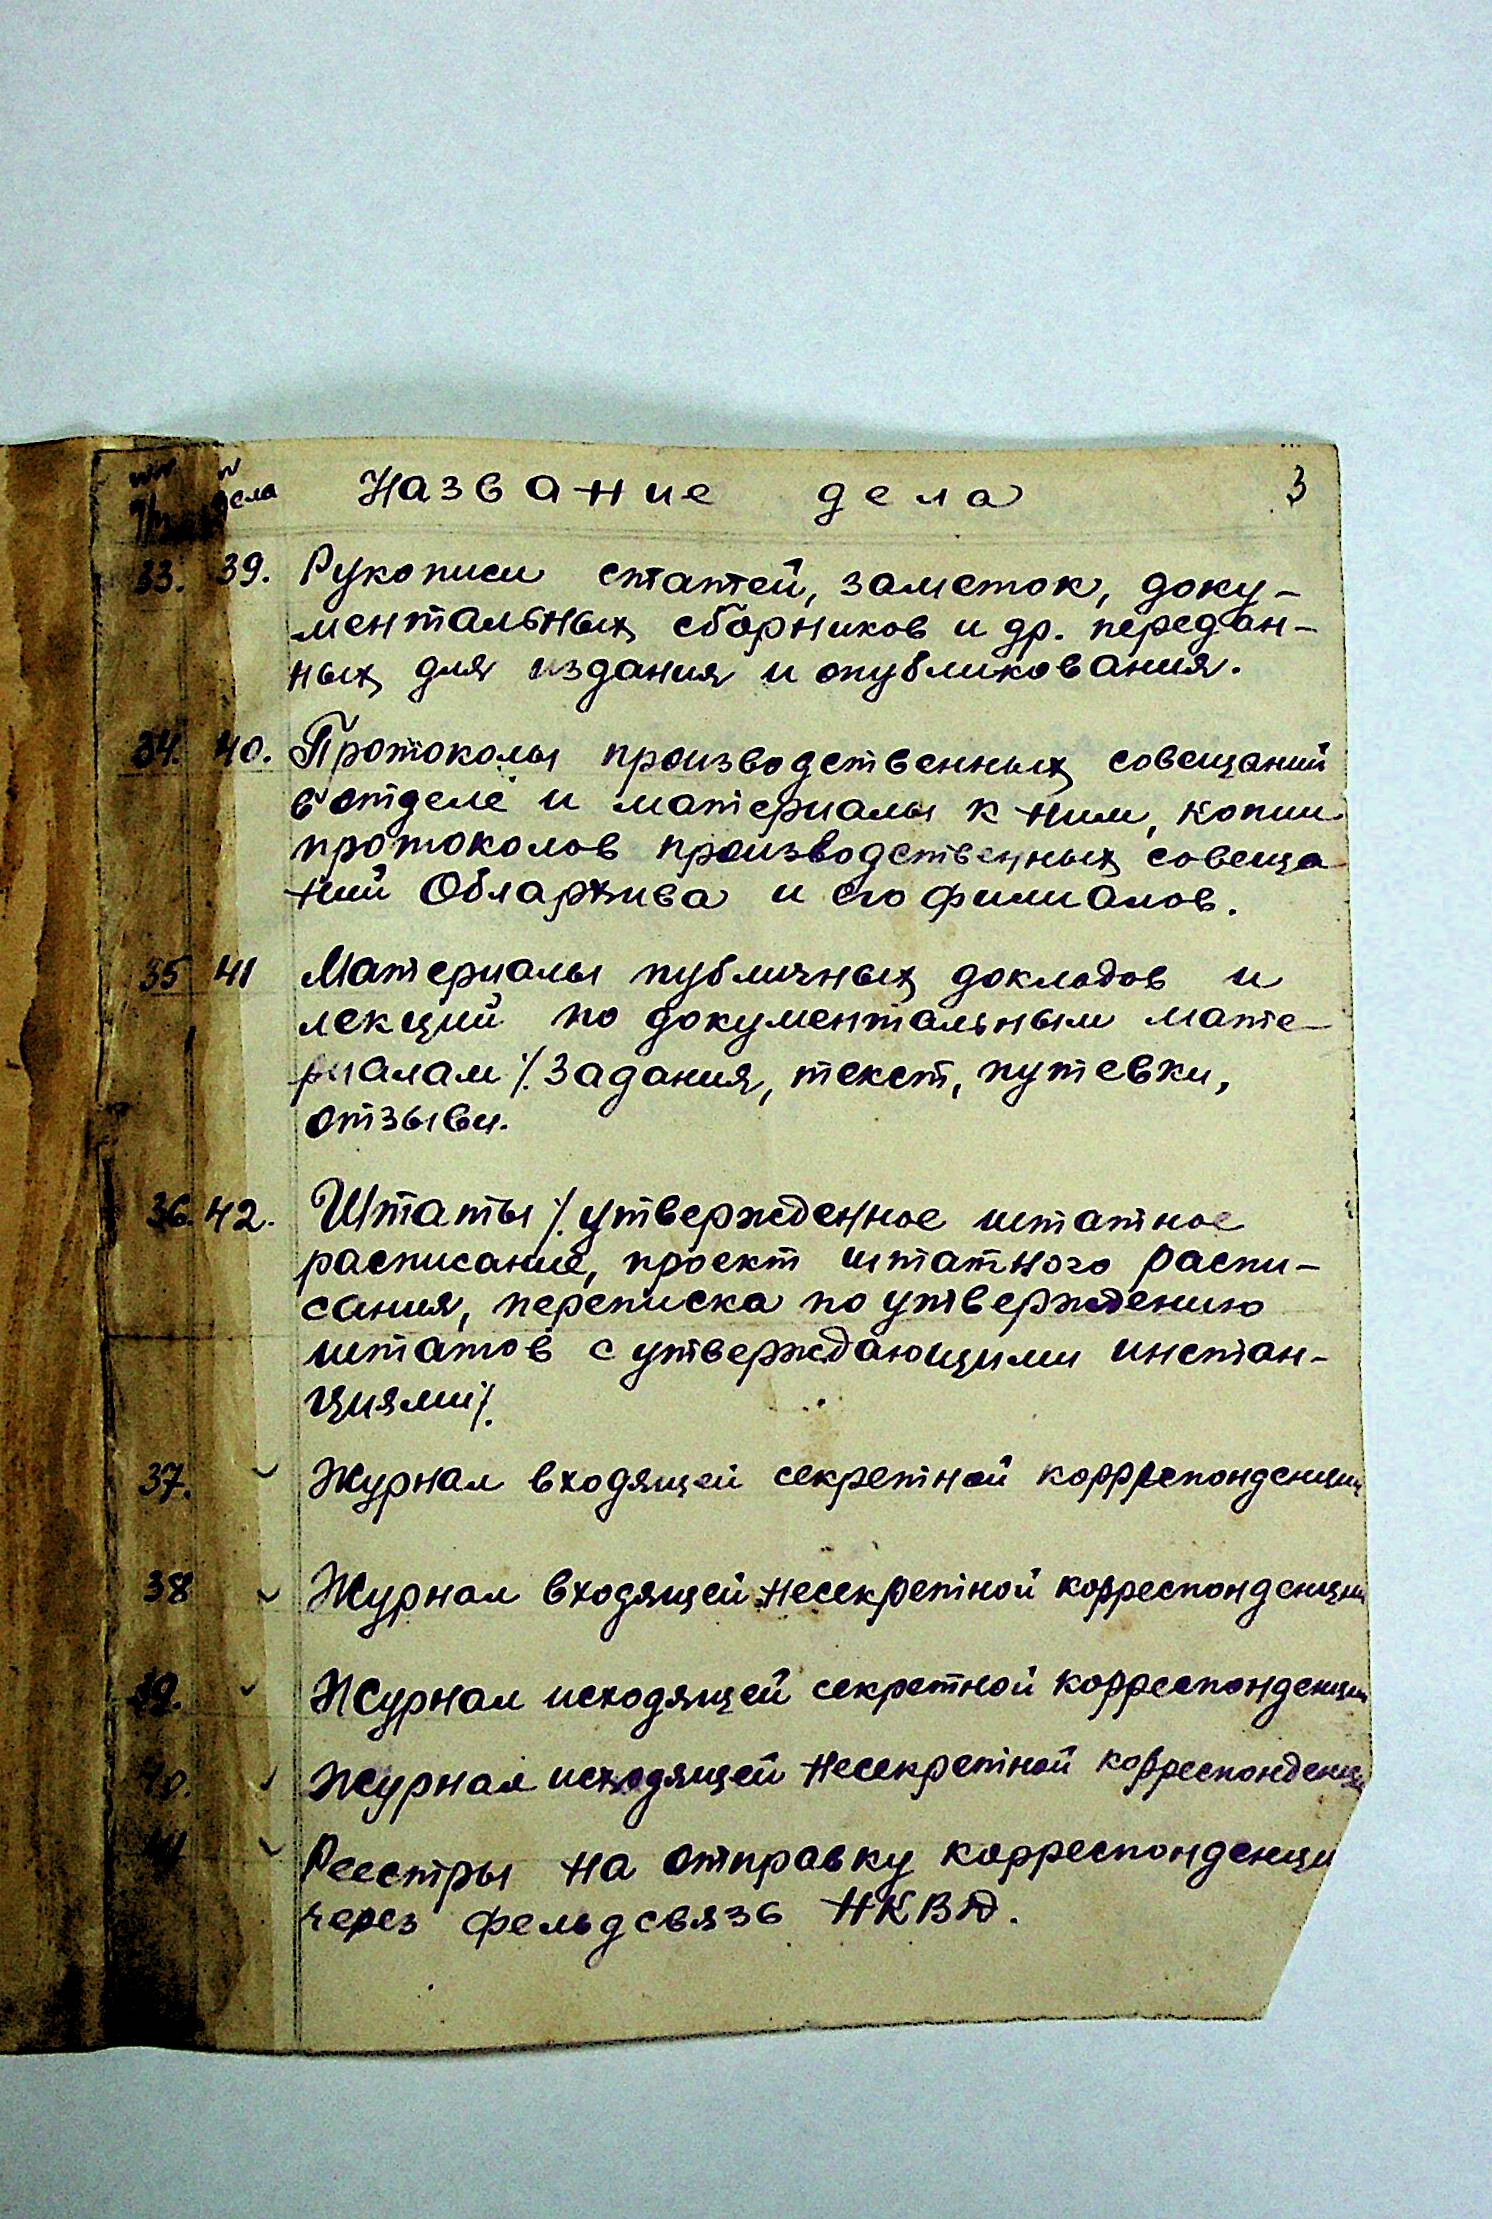 №№ № Название дела 3
п/п дела
33. 39. Рукописи статей, заметок, доку-
ментальных сборников и др. передан-
ных для издания и опубликования.
34. 40. Протоколы производственных совещаний
в отделе и материалы к ним, копии
протоколов производственных совеща
ний Облархива и его филиалов.
35 41 Материалы публичных докладов и
лекций по документальным мате-
риалам /. Задания, текст, путевки,
отзывы.
36. 42. Штаты /. утвержденное штатное
расписание, проект штатного распи-
сания, переписка по утверждению
штатов с утверждающими инстан-
циями /.
37. Журнал входящей секретной корреспонденции
38 Журнал входящей несекретной корреспонденции
39. Журнал исходящей секретной корреспонденции
40. Журнал исходящей несекретной корреспонденц
41 Реестры на отправку корреспонденци
через фельдсвязь НКВД.